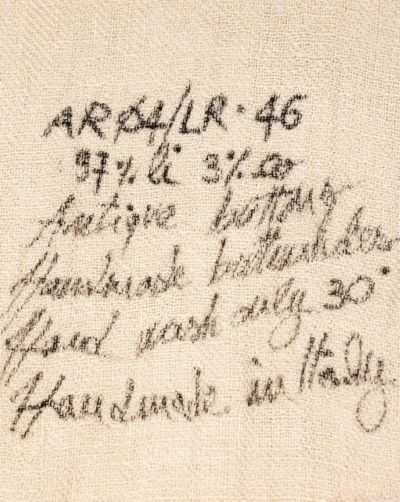 ARØ4/LR·46
97% li 3% co
Antique bottons
Handmade buttonholes
Hand wash only 30°
Handmade in Italy